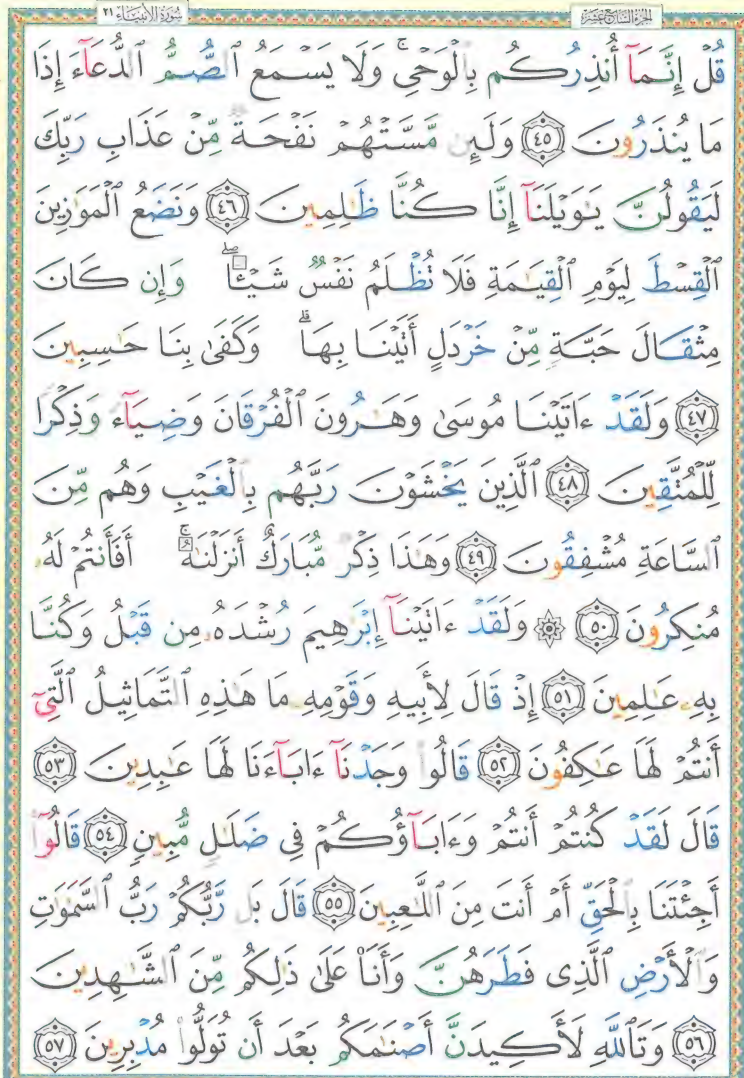 الجزء السابع عشر
سورة الأنبياء ٢١
قُلْ إِنَّمَآ أُنذِرُكُم بِٱلْوَحْىِ ۚ وَلَا يَسْمَعُ ٱلصُّمُّ ٱلدُّعَآءَ إِذَا
مَا يُنذَرُونَ ٤٥ وَلَئِن مَّسَّتْهُمْ نَفْحَةٌ مِّنْ عَذَابِ رَبِّكَ
لَيَقُولُنَّ يَـٰوَيْلَنَآ إِنَّا كُنَّا ظَـٰلِمِينَ ٤٦ وَنَضَعُ ٱلْمَوَٰزِينَ
ٱلْقِسْطَ لِيَوْمِ ٱلْقِيَـٰمَةِ فَلَا تُظْلَمُ نَفْسٌ شَيْـًٔا ۖ وَإِن كَانَ
مِثْقَالَ حَبَّةٍ مِّنْ خَرْدَلٍ أَتَيْنَا بِهَا ۗ وَكَفَىٰ بِنَا حَـٰسِبِينَ
٤٧ وَلَقَدْ ءَاتَيْنَا مُوسَىٰ وَهَـٰرُونَ ٱلْفُرْقَانَ وَضِيَآءً وَذِكْرًا
لِّلْمُتَّقِينَ ٤٨ ٱلَّذِينَ يَخْشَوْنَ رَبَّهُم بِٱلْغَيْبِ وَهُم مِّنَ
ٱلسَّاعَةِ مُشْفِقُونَ ٤٩ وَهَـٰذَا ذِكْرٌ مُّبَارَكٌ أَنزَلْنَـٰهُ ۚ أَفَأَنتُمْ لَهُۥ
مُنكِرُونَ ٥٠ ۞ وَلَقَدْ ءَاتَيْنَآ إِبْرَٰهِيمَ رُشْدَهُۥ مِن قَبْلُ وَكُنَّا
بِهِۦ عَـٰلِمِينَ ٥١ إِذْ قَالَ لِأَبِيهِ وَقَوْمِهِۦ مَا هَـٰذِهِ ٱلتَّمَاثِيلُ ٱلَّتِىٓ
أَنتُمْ لَهَا عَـٰكِفُونَ ٥٢ قَالُوا۟ وَجَدْنَآ ءَابَآءَنَا لَهَا عَـٰبِدِينَ ٥٣
قَالَ لَقَدْ كُنتُمْ أَنتُمْ وَءَابَآؤُكُمْ فِى ضَلَـٰلٍ مُّبِينٍ ٥٤ قَالُوٓا۟
أَجِئْتَنَا بِٱلْحَقِّ أَمْ أَنتَ مِنَ ٱللَّـٰعِبِينَ ٥٥ قَالَ بَل رَّبُّكُمْ رَبُّ ٱلسَّمَـٰوَٰتِ
وَٱلْأَرْضِ ٱلَّذِى فَطَرَهُنَّ وَأَنَا۠ عَلَىٰ ذَٰلِكُم مِّنَ ٱلشَّـٰهِدِينَ
٥٦ وَتَٱللَّهِ لَأَكِيدَنَّ أَصْنَـٰمَكُم بَعْدَ أَن تُوَلُّوا۟ مُدْبِرِينَ ٥٧